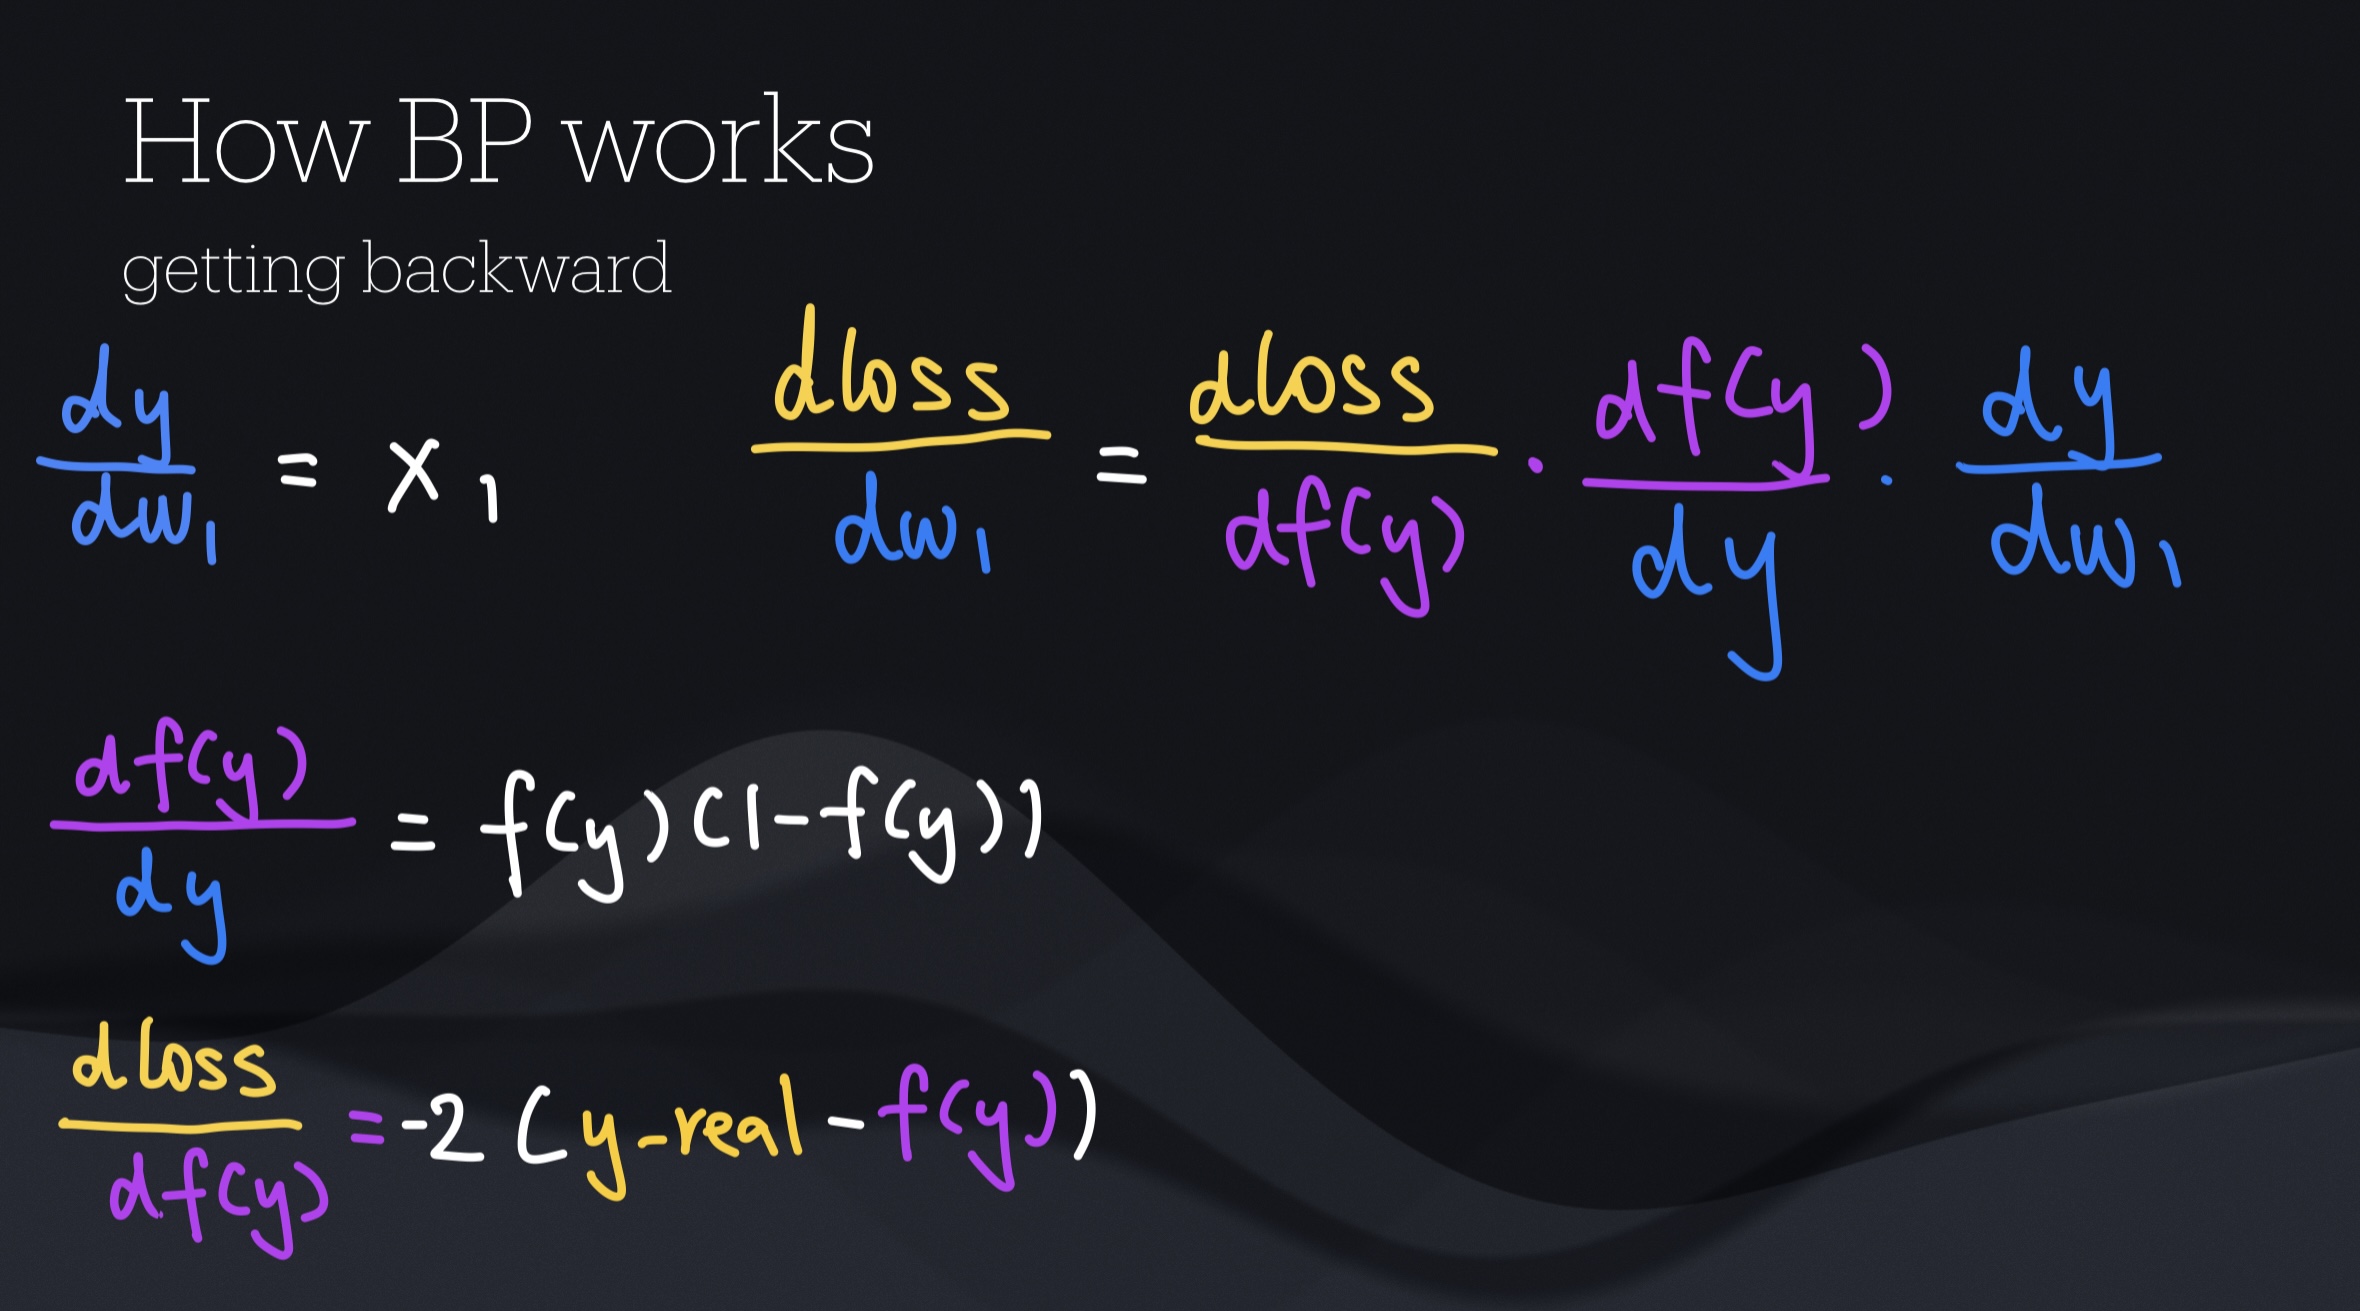 How BP works
getting backward
dy/dw₁ = x₁
dloss/dw₁ = dloss/df(y) · df(y)/dy · dy/dw₁
df(y)/dy = f(y)(1-f(y))
dloss/df(y) = -2(y-real-f(y))